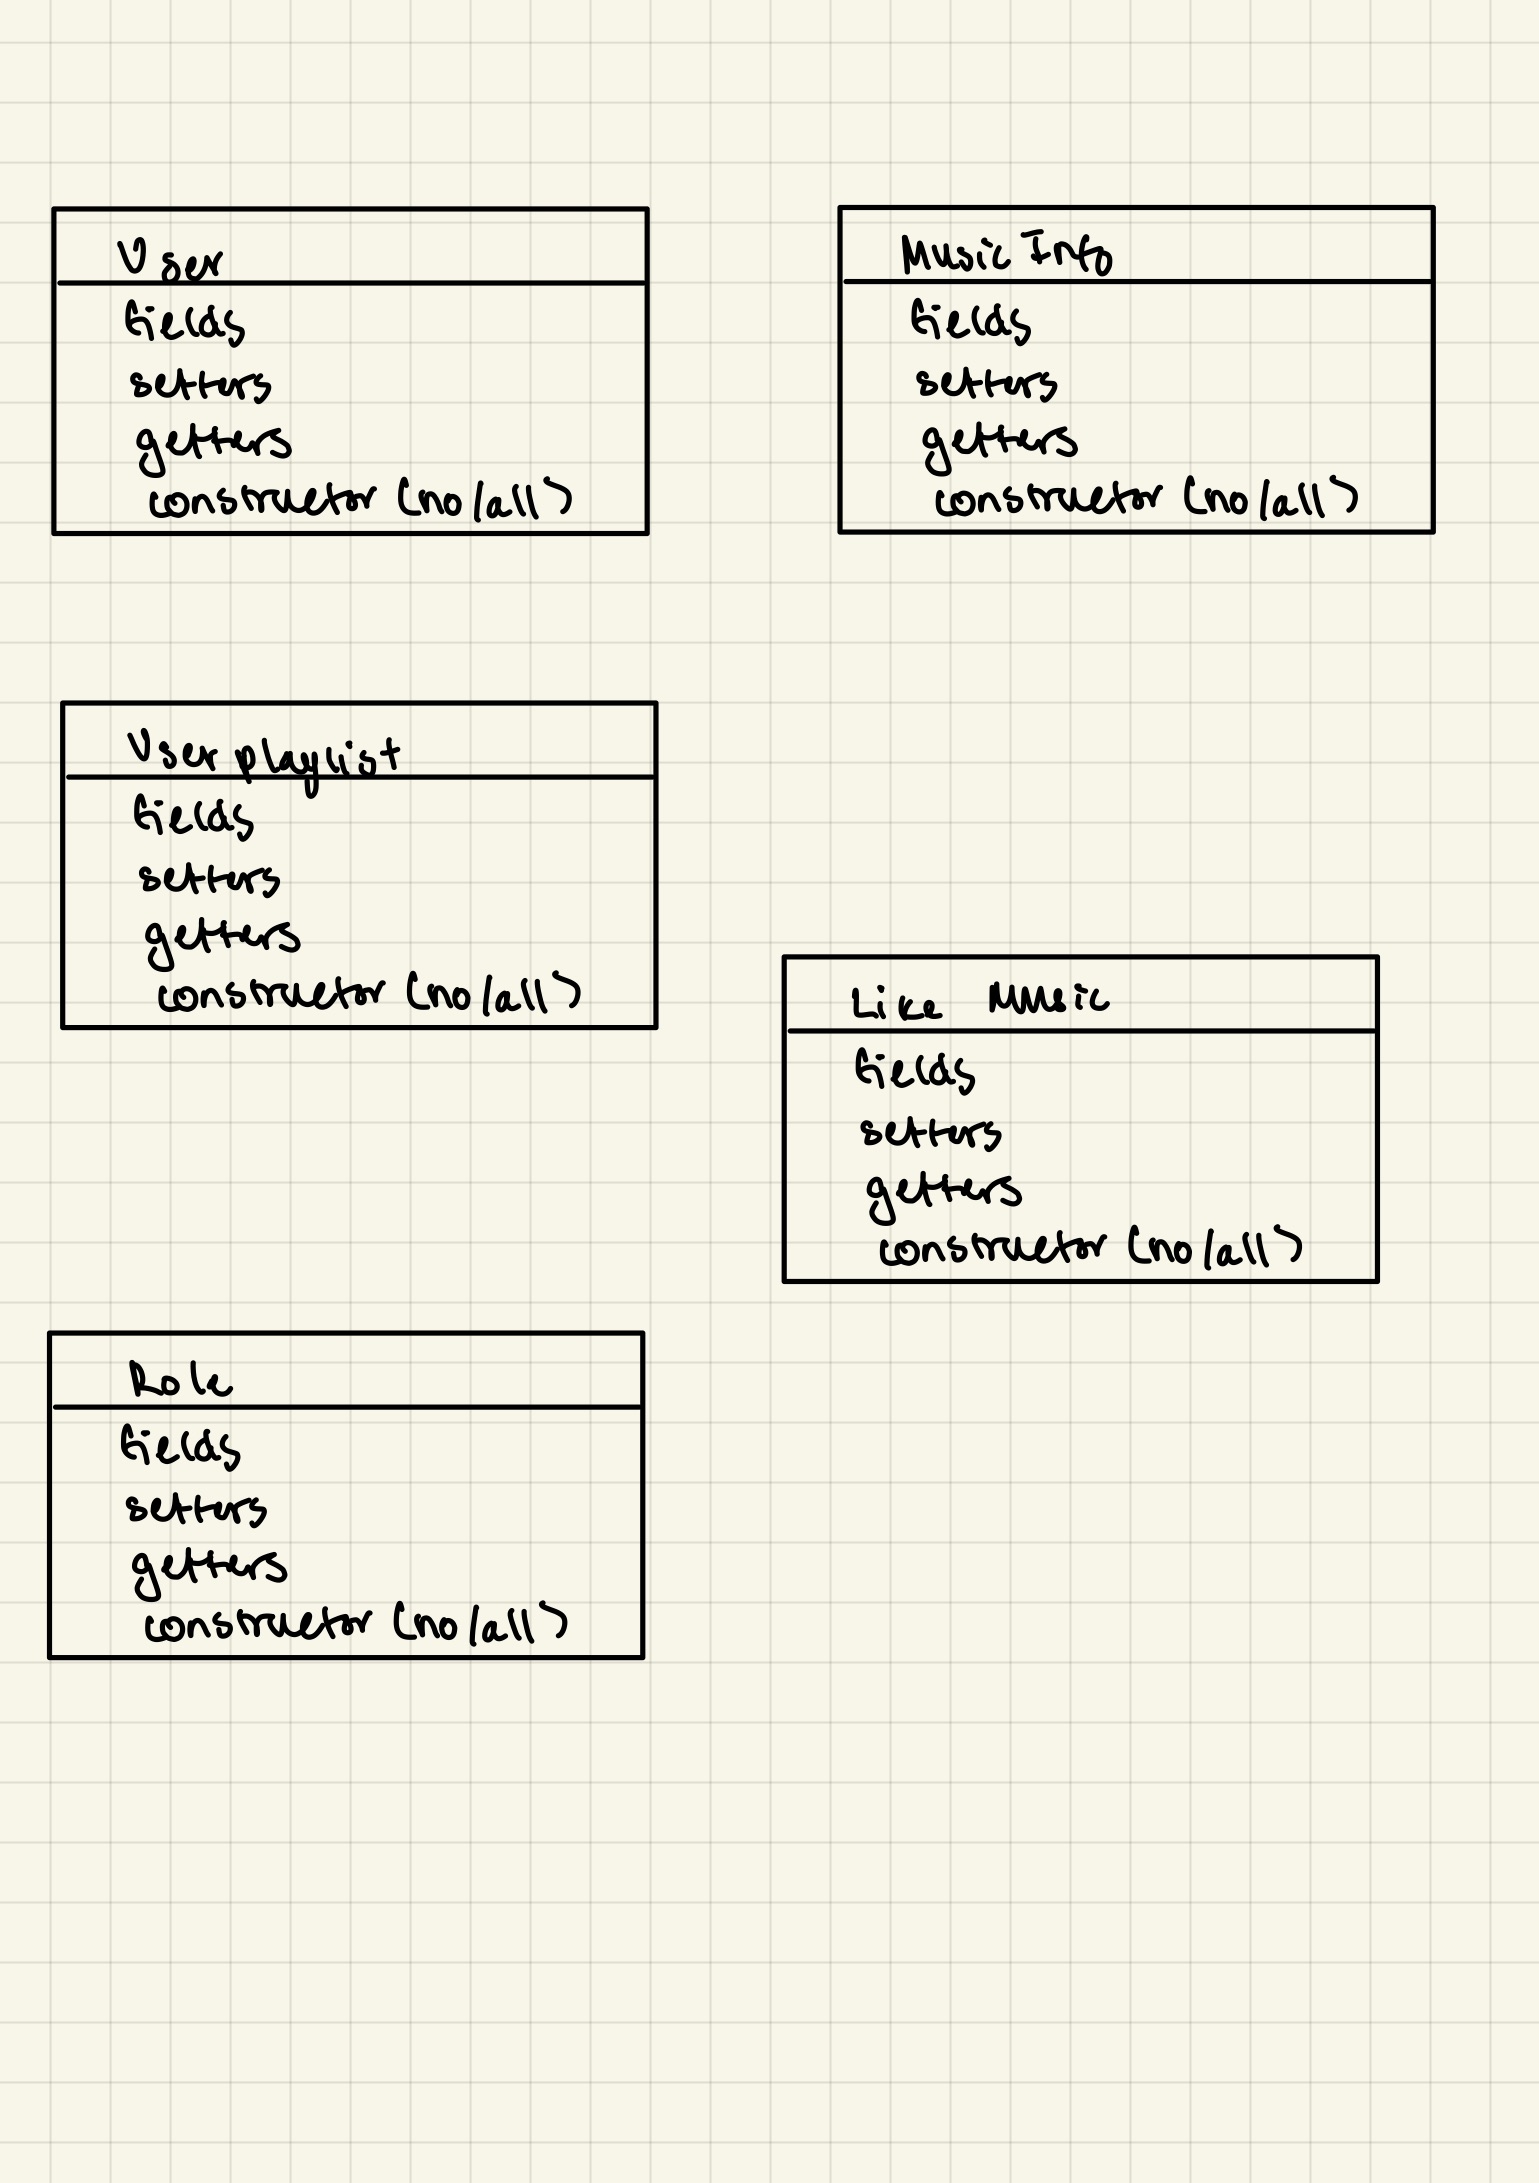 User
fields
setters
getters
constructor (no/all)
Music Info
fields
setters
getters
constructor (no/all)
User playlist
fields
setters
getters
constructor (no/all)
Like Music
fields
setters
getters
constructor (no/all)
Role
fields
setters
getters
constructor (no/all)